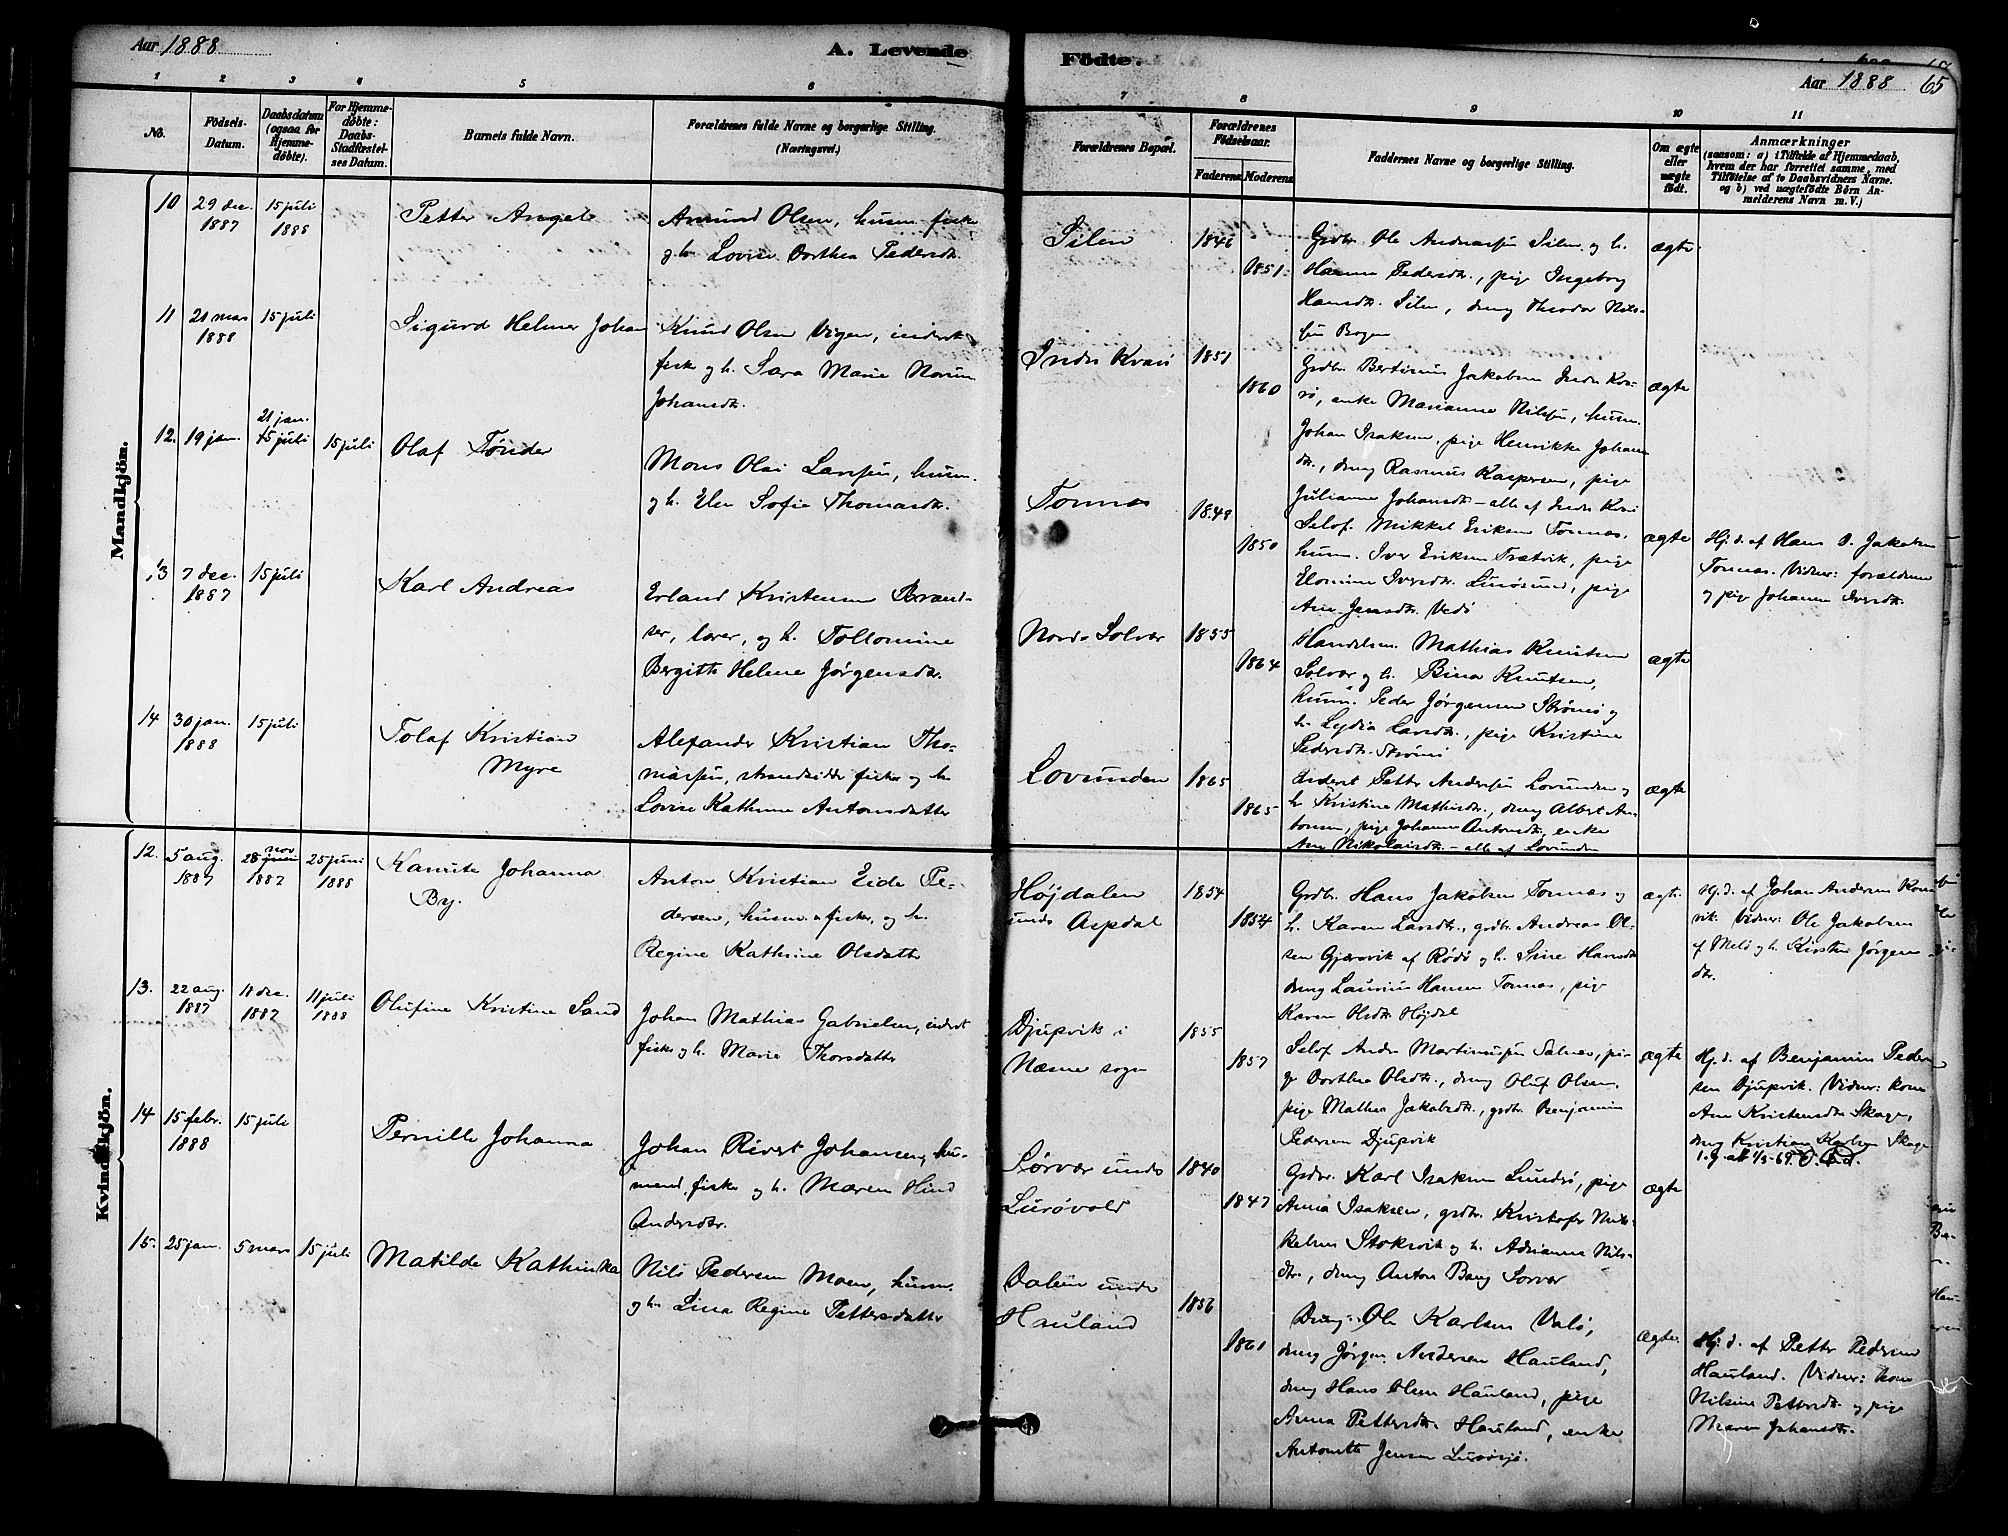 Aar 1888
A. Levende
Födte.
Aar 1888 65
1 2 3 4 5 6
7 8 9 10 11
No.
Födsels-Datum.
Daabsdatum (ogsaa for Hjemme-døbte).
For Hjemme-døbte: Daabs-Stadfæstel-ses Datum.
Barnets fulde Navn.
Forældrenes fulde Navne og borgerlige Stilling.
(Næringsvei.)
Forældrenes Bopæl.
Forældrenes Födselsaar.
Faderens. Moderens.
Faddernes Navne og borgerlige Stilling.
Om ægte eller uægte födt.
Anmærkninger
(saasom: a) i Tilfælde af Hjemmedaab,
hvem der har forrettet samme, med
Tilføielse af to Daabsvidners Navne.
og b) ved uægtefödte Börn An-
melderens Navn m. V.)
Mandkjön.
10 29 dec. 1887 15 juli 1888
Petter Angel
Amund Olsen, husm. fisker
og h. Lovise Dorthea Pedersdtr.
Silen 1846 1851
Grdbr. Ole Andreassen Silen og h.
Hanna Pedersdtr., pige Ingeborg
Hansdtr. Silen, dreng Theodor Nils-
sen Bogen
ægte
11 21 mars 1888 15 juli
Sigurd Helmer Johan
Knud Olsen Vigen, inderst
fisker og h. Sara Marie Norum
Johansdtr.
Indre Kvarø 1851 1860
Grdbr. Bertinus Jakobsen Indre Kva-
rø, enke Marianne Nilsen, husm.
Johan Isaksen, pige Henrikke Johans
dtr., dreng Rasmus Kaspersen, pige
Julianne Johansdtr. - alle af Indre Kvarø
ægte
12. 19 jan. 21 jan. 15 juli 15 juli
Olaf Tønder
Mons Olai Larssen, husm.
og h. Elen Sofie Thomasdtr.
Tonnes 1848 1850
Selof. Mikkel Eriksen Tonnes,
husm. Iver Eriksen Trætvik, pige
Elomine Iversdtr. Lurøsund, pige
Ane Jensdtr. Vedø
ægte
Hj. d. af Hans O. Jakobsen
Tonnes. Vidner: forældrene
og pige Johanna Iversdtr.
13 7 dec. 1887 15 juli
Karl Andreas
Erland Kristensen Brand-
ser, lærer, og h. Tollomine
Bergitte Helene Jørgensdtr.
Nordre Solvær 1855 1864
Handelsm. Mathias Knutsen
Solvær og h. Bina Knutsen,
husm. Peder Jørgensen Strømø og
h. Lydia Larsdtr., pige Kristine
Pedersdtr. Strømø
ægte
14 30 jan. 1888 15 juli
Tolaf Kristian
Myre
Alexander Kristian Tho-
massen, strandsidder fisker og h.
Lovise Kathrine Antonsdatter
Lovunden 1865 1865
Inderst Petter Anderssen Lovunden og
h. Kristine Mathisdtr., dreng Albert An-
tonsen, pige Johanna Antonsdtr., enke
Ane Nikolaisdtr. - alle af Lovunden
ægte
Kvindekjön.
12. 5 aug. 1887 28 nov 1887 25 juni 1888
Kanute Johanna
By.
Anton Kristian Eide Pe-
dersen, husm. fisker, og h.
Regine Kathrine Olsdatter
Højdalen
under Aspdal 1854 1854
Grdbr. Hans Jakobsen Tonnes og
h. Karen Larsdtr., grdbr. Andreas Ol-
sen Gjærsvik af Rødø og h. Sine Hansdtr.
dreng Laurius Hansen Tonnes, pige
Karen Olsdtr. Højdal
ægte
Hj. d. af Johan Andersen Korn
vik. Vidner: Ole Jakobsen
af Melø og h. Kirsten Jørgens
dtr.
13. 22 aug. 1887 11 dec. 1887 11 juli 1888
Olufine Kristine Sand
Johan Mathias Gabrielsen, inderst
fisker og h. Marie Thorsdatter
Djupvik i
Næsne sogn 1855 1857
Selof Andr. Martinussen Salnes, pi-
ge Dorthea Olsdtr., dreng Oluf Olsen,
pige Mathea Jakobsdtr., grdbr. Benjamin
Pedersen Djupvik
ægte
Hj. d. af Benjamin Peder
sen Djupvik. Vidner: kone
Ane Kristensdtr. Skage,
dreng Kristian Karlsen Skage
14 15 febr. 1888 15 juli
Pernille Johanna
Johan Rivert Johansen, hus-
mand, fisker og h. Maren Hind
Andersdtr.
Sørvær under
Lurøvold 1840 1847
Grdbr. Karl Isaksen Lundø, pige
Anna Isaksen, grdbr. Kristofer Mik-
kelsen Stoksvik og h. Adrianna Nils-
dtr., dreng Anton Bang Sørvær
ægte
15. 25 jan. 5 mars 15 juli
Matilde Kathinka
Nils Pedersen Moen, husm.
og h. Lina Regine Pettersdatter
Dalen under
Hauland 1856 1861
Dreng Ole Karlsen Valø,
dreng Jørgen Andersen Hauland,
dreng Hans Olsen Hauland, pige
Anna Pettersdtr. Hauland, enke
Antonette Jensen Lurøsjø.
ægte
Hj. d. af Petter Pedersen
Hauland. Vidner: kone
Nilsine Pettersdtr. og pige
Maren Johansdtr.